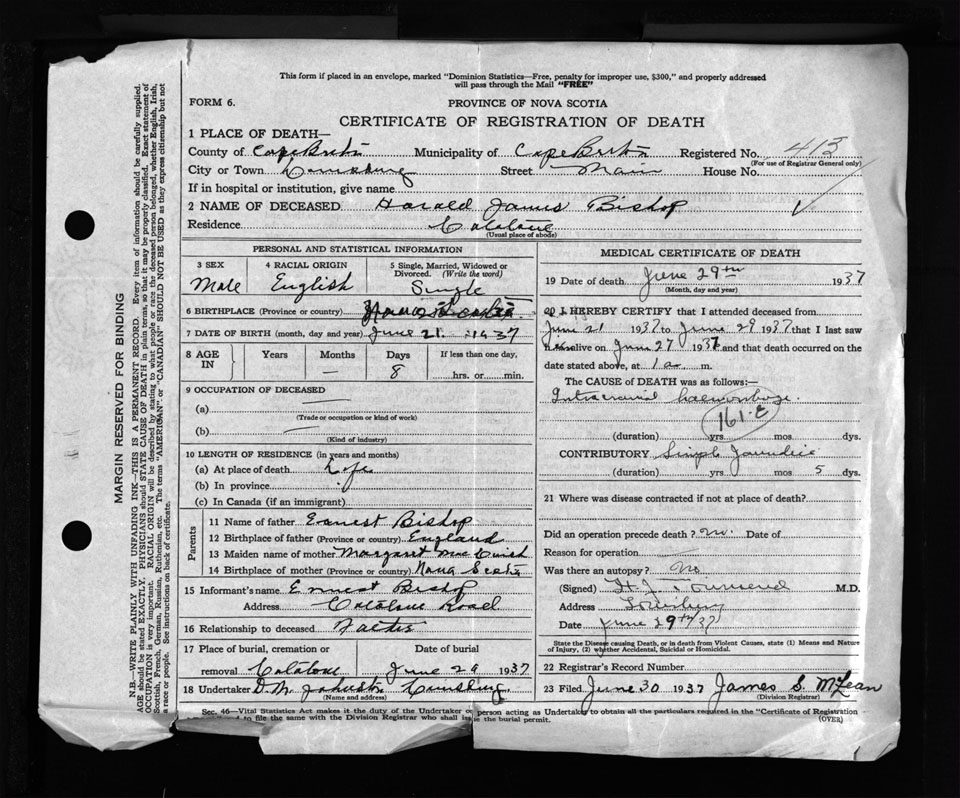 This form if placed in an envelope, marked "Dominion Statistics—Free, penalty for improper use, $300," and properly addressed
will pass through the Mail "FREE"
FORM 6.
PROVINCE OF NOVA SCOTIA
CERTIFICATE OF REGISTRATION OF DEATH
1 PLACE OF DEATH—
County of Cape Breton Municipality of Cape Breton Registered No. 413
(For use of Registrar General only)
City or Town Louisburg Street Main House No.
If in hospital or institution, give name
2 NAME OF DECEASED Harold James Bishop
Residence Catalone
(Usual place of abode)
PERSONAL AND STATISTICAL INFORMATION
3 SEX 4 RACIAL ORIGIN 5 Single, Married, Widowed or Divorced. (Write the word)
Male English Single
6 BIRTHPLACE (Province or country) Nova Scotia
7 DATE OF BIRTH (month, day and year) June 21. 1937
8 AGE IN Years Months Days If less than one day,
— 8 hrs. or min.
9 OCCUPATION OF DECEASED
(a) —
(Trade or occupation or kind of work)
(b) —
(Kind of industry)
10 LENGTH OF RESIDENCE (in years and months)
(a) At place of death Life
(b) In province
(c) In Canada (if an immigrant)
Parents
11 Name of father Earnest Bishop
12 Birthplace of father (Province or country) England
13 Maiden name of mother Margaret Mac
14 Birthplace of mother (Province or country) Nova Scotia
15 Informant's name Ernest Bishop
Address Catalone Road
16 Relationship to deceased Father
17 Place of burial, cremation or Date of burial
removal Catalone June 29 1937
18 Undertaker D.M. Johnston Louisburg
(Name and address)
MEDICAL CERTIFICATE OF DEATH
19 Date of death June 29th 1937
(Month, day and year)
20 I HEREBY CERTIFY that I attended deceased from
June 21 1937 to June 29 1937 that I last saw
alive on June 27 1937 and that death occurred on the
date stated above, at 1 a m.
The CAUSE OF DEATH was as follows:—
Intracranial haemorrhage.
161·E
(duration) yrs. mos dys.
CONTRIBUTORY Simple Jaundice
(duration) yrs mos 5 dys.
21 Where was disease contracted if not at place of death?
Did an operation precede death? No. Date of
Reason for operation
Was there an autopsy? No
(Signed) H.J. Townsend M.D.
Address Louisburg
Date June 29th/37
State the Disease causing Death, or in death from Violent Causes, state (1) Means and Nature
of Injury, (2) whether Accidental, Suicidal or Homicidal.
22 Registrar's Record Number
23 Filed June 30 1937 James S. McLean
(Division Registrar)
Sec. 46—Vital Statistics Act makes it the duty of the Undertaker or person acting as Undertaker to obtain all the particulars required in the "Certificate of Registration
to file the same with the Division Registrar who shall issue the burial permit.
(OVER)
MARGIN RESERVED FOR BINDING
N.B.—WRITE PLAINLY WITH UNFADING INK—THIS IS A PERMANENT RECORD. Every item of information should be carefully supplied.
AGE should be stated EXACTLY. PHYSICIANS should STATE CAUSE OF DEATH in plain terms, so that it may be properly classified. Exact statement of
OCCUPATION is very important. RACIAL ORIGIN will be described by stating to what people or race the deceased person belonged, whether English, Irish,
Scottish, French, German, Russian, Ruthenian, etc. The terms "AMERICAN" or "CANADIAN" SHOULD NOT BE USED as they express citizenship but not
a race or people. See instructions on back of certificate.